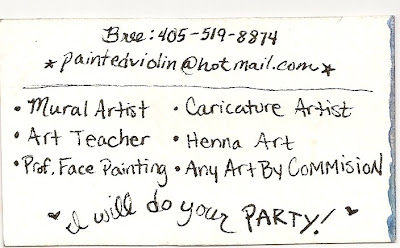 Bree: 405-519-8874
*paintedviolin@hotmail.com*
• Mural Artist • Caricature Artist
• Art Teacher • Henna Art
• Prof. Face Painting • Any Art By COMMISION
♥ I will do your PARTY! ♥